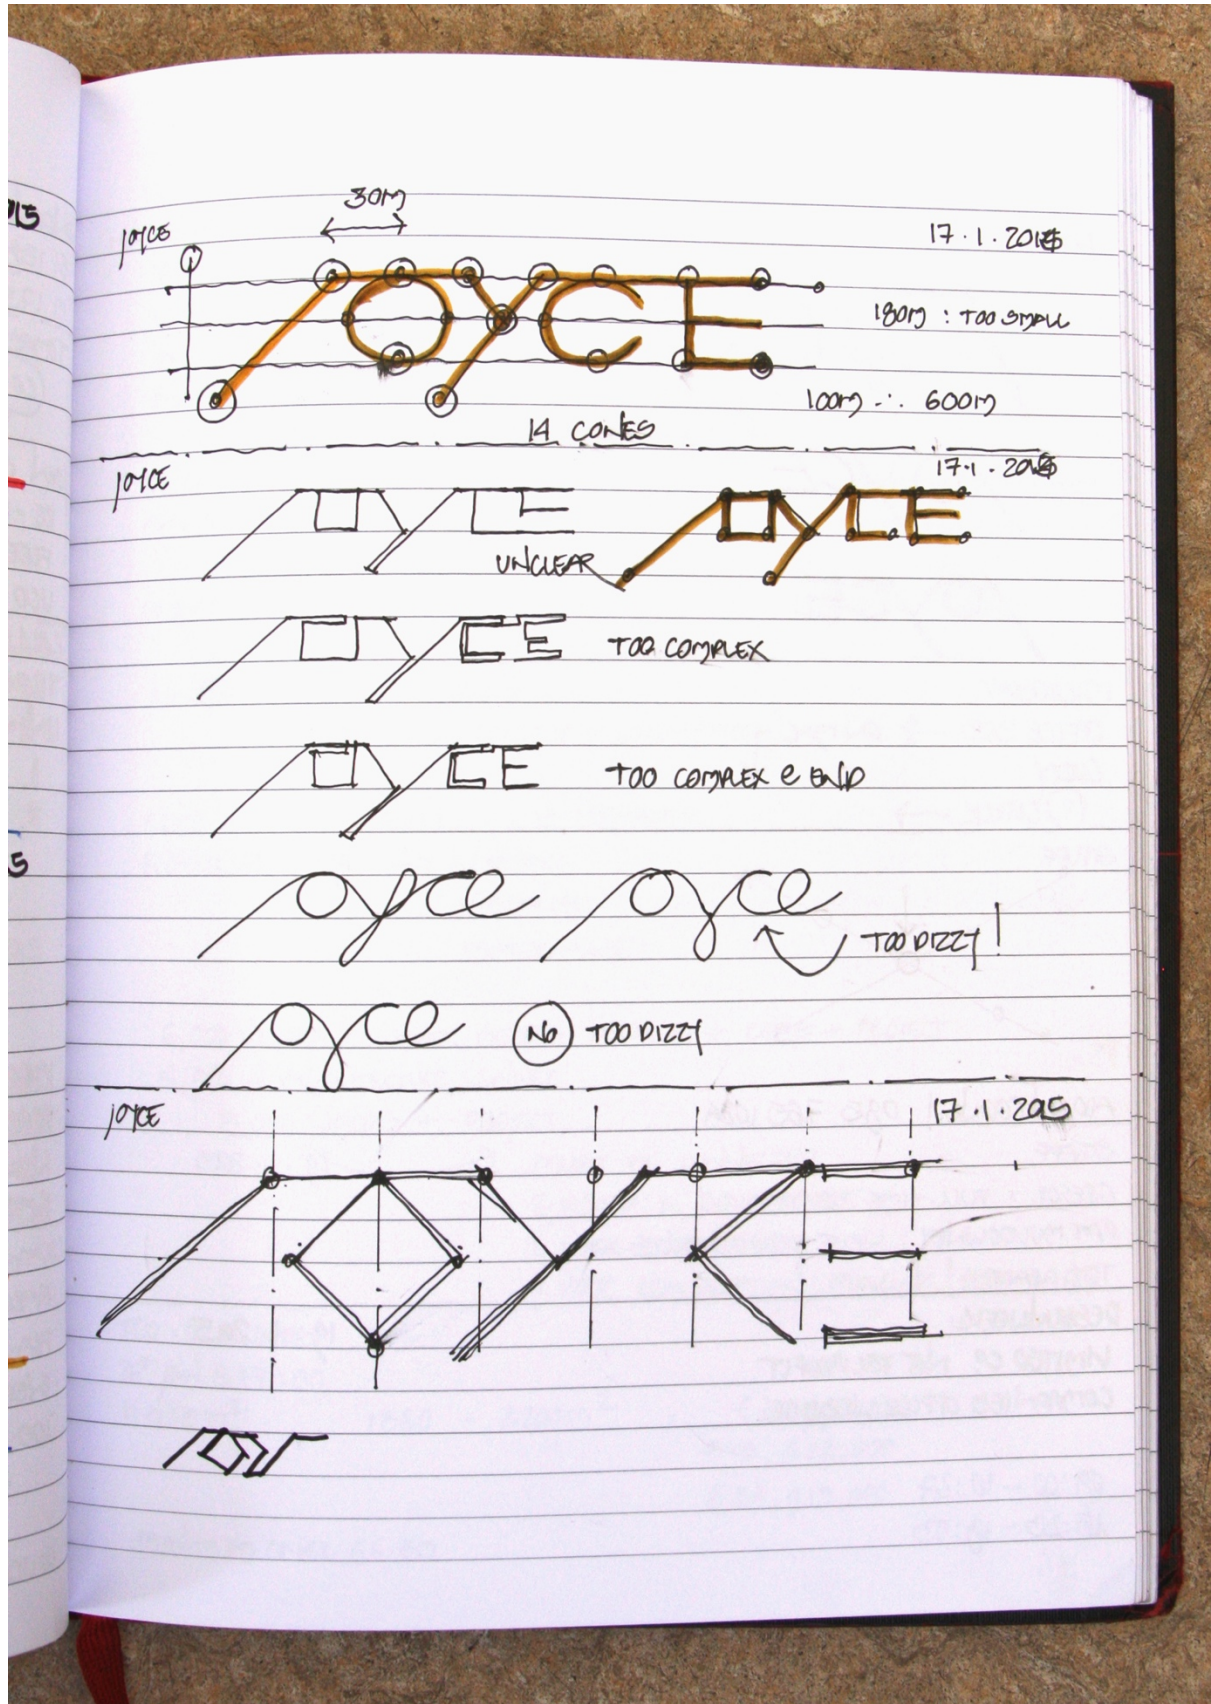 015
30M
JOYCE
17.1.2015
JOYCE
180M : TOO SMALL
100M ∴ 600M
14 CONES
JOYCE
17.1.2015
JOYCE
JOYCE
UNCLEAR
JOYCE
TOO COMPLEX
JOYCE
TOO COMPLEX @ END
5
Joyce
Joyce
TOO DIZZY!
Joyce
NO TOO DIZZY
JOYCE
17.1.2015
JOYCE
JOY